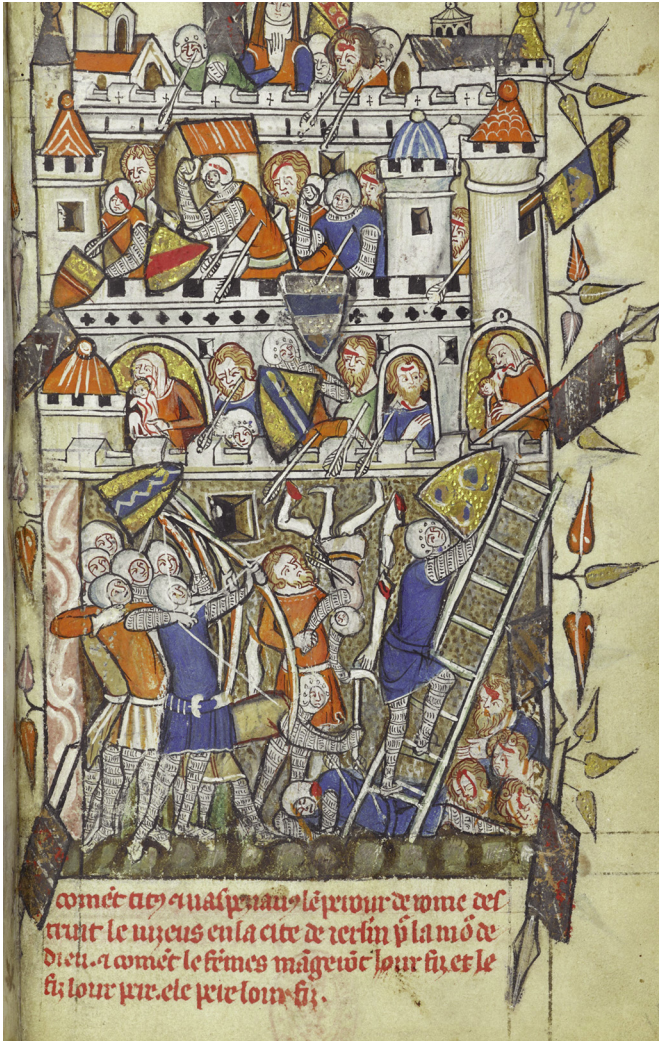 190
comēt titꝰ ⁊ uaspenaūꝯ lēpeiour de rome des
truit le iuzeus en la cite de ierlm̄ p̄ la mō de
dieu. ⁊ comēt le fēmes māgerōt lour fiz et le
fiz lour peir. e le peir lour fiz.